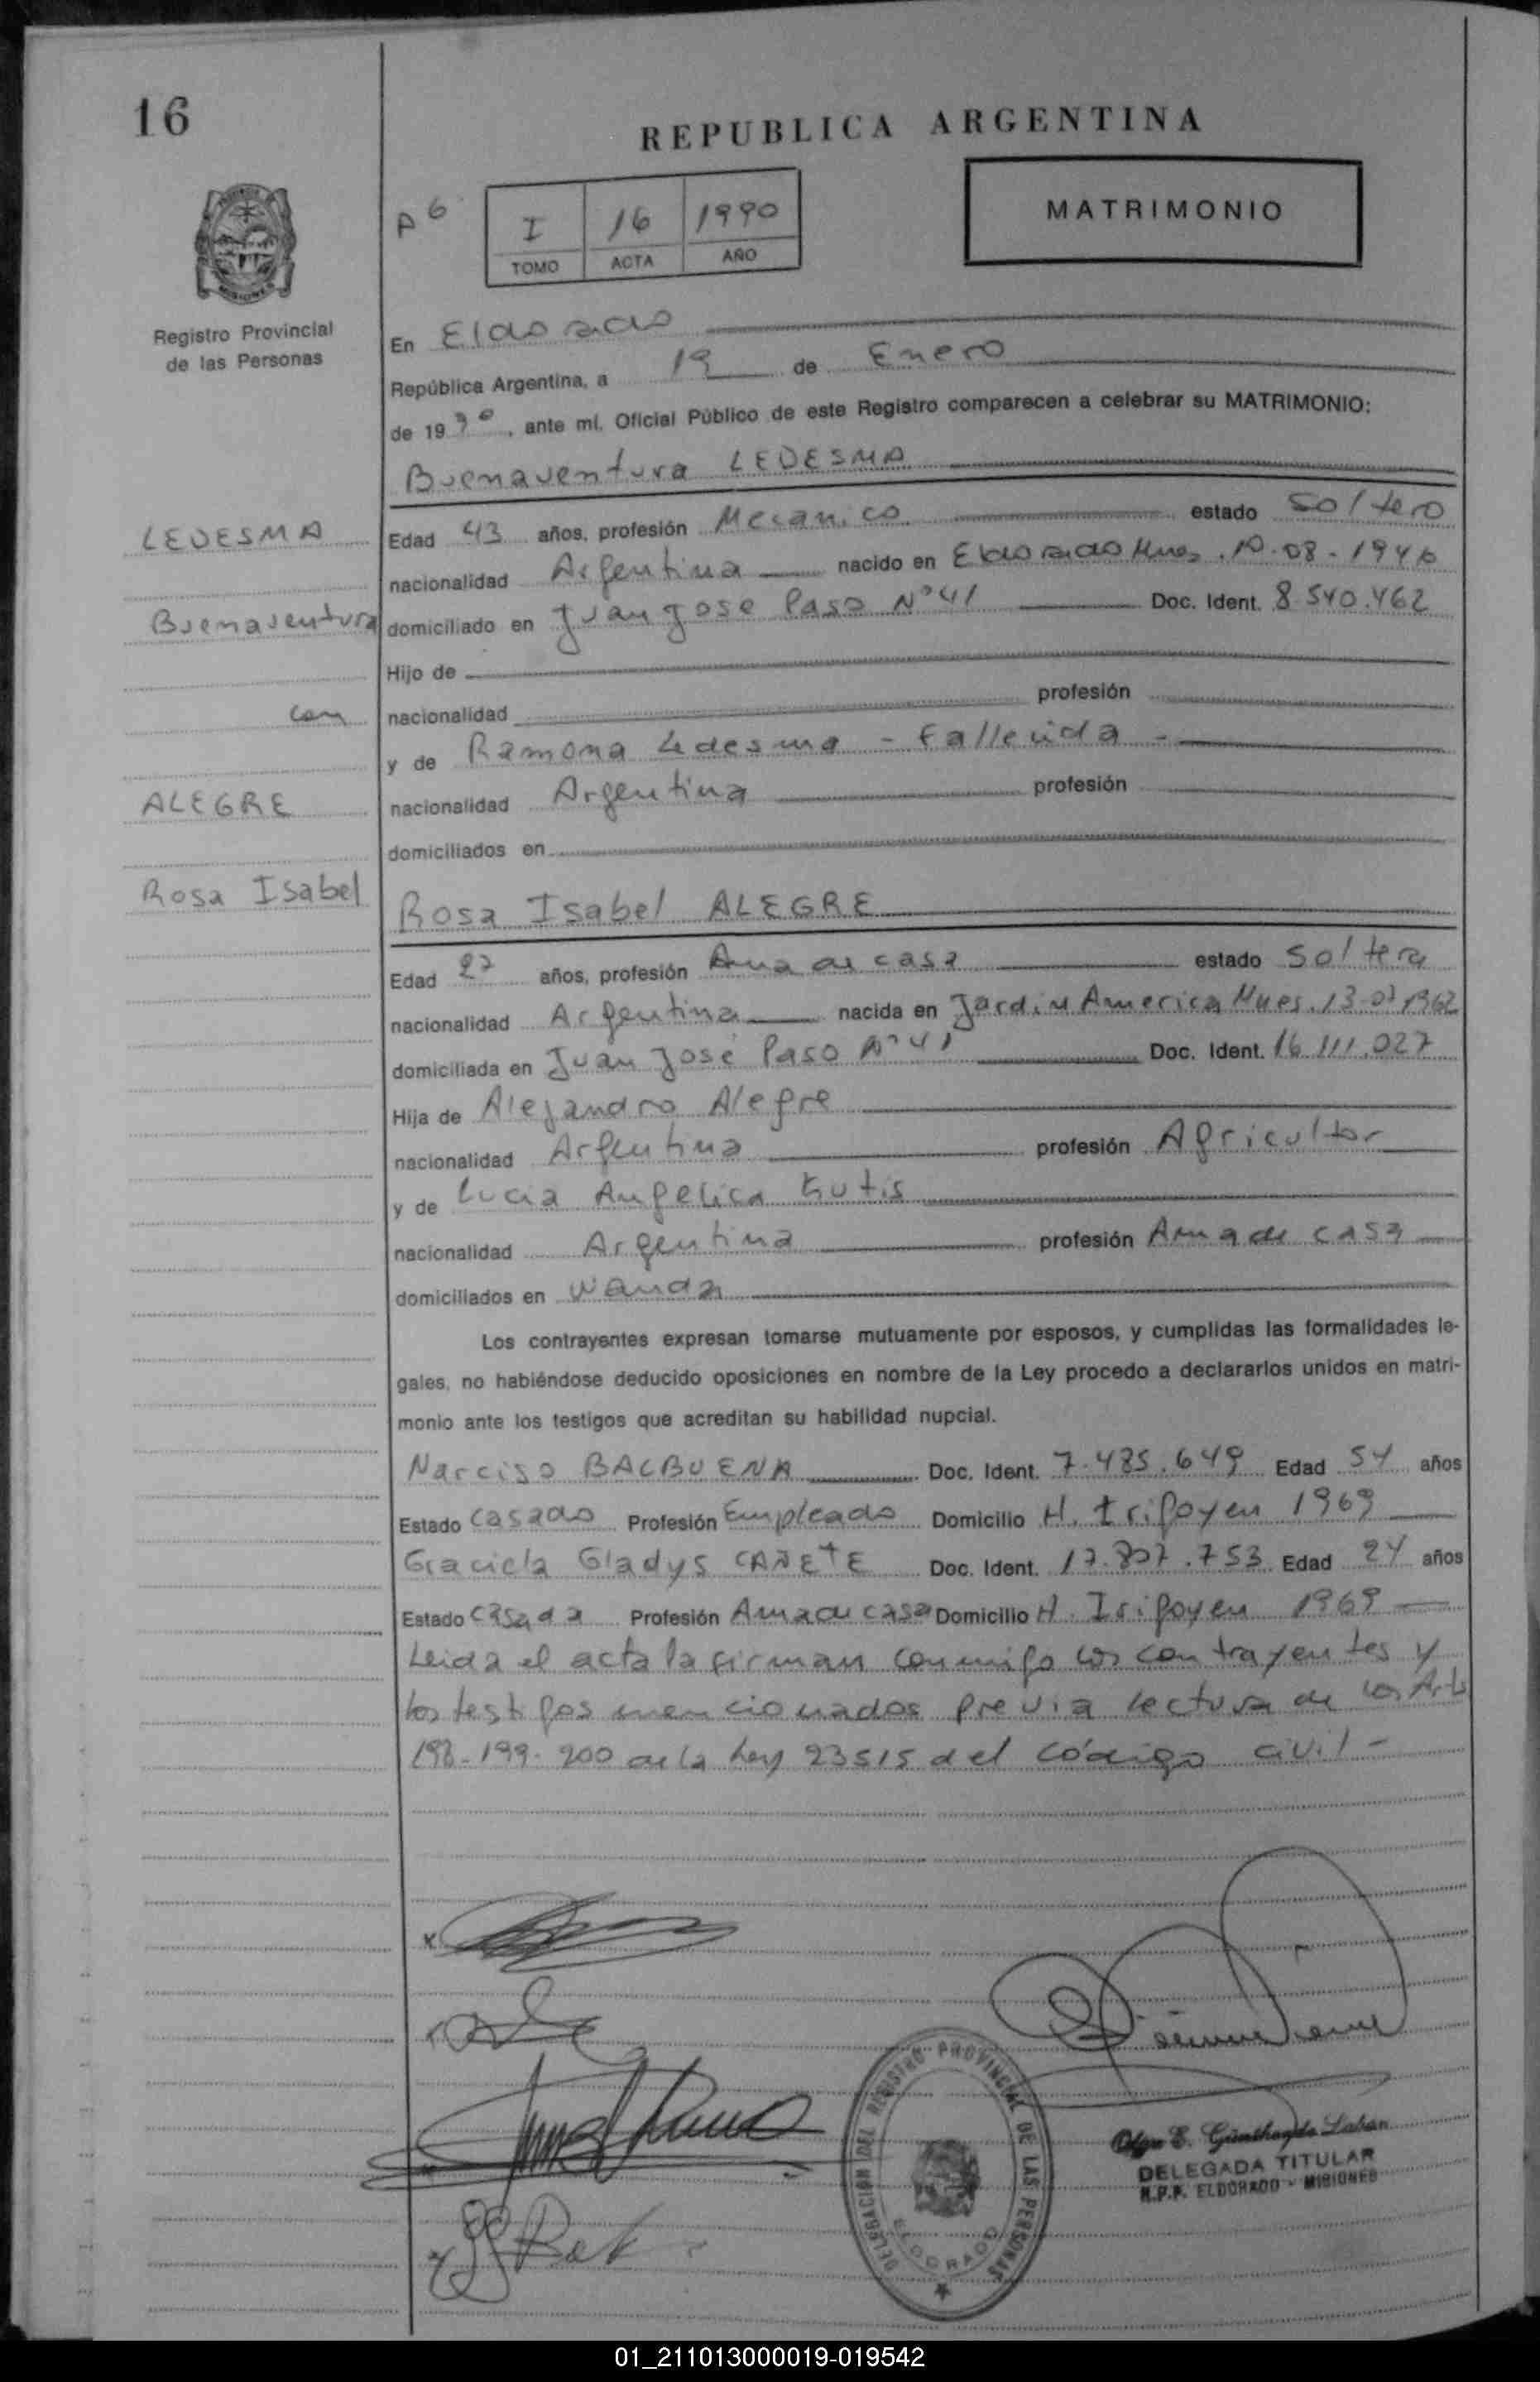 16
REPUBLICA ARGENTINA
MATRIMONIO
A 6
I 16 1990
TOMO ACTA AÑO
MISIONES
Registro Provincial
de las Personas
En Eldorado
República Argentina, a 19 de Enero
de 1990, ante mí, Oficial Público de este Registro comparecen a celebrar su MATRIMONIO:
Buenaventura LEDESMA
LEDESMA
Buenaventura
con
ALEGRE
Rosa Isabel
Edad 43 años, profesión Mecanico estado Soltero
nacionalidad Argentina nacido en Eldorado Mnes. 10-08-1946
domiciliado en Juan José Paso Nº 41 Doc. Ident. 8.540.462
Hijo de
nacionalidad profesión
y de Ramona Ledesma - Fallecida -
nacionalidad Argentina profesión
domiciliados en
Rosa Isabel ALEGRE
Edad 27 años, profesión Ama de casa estado Soltera
nacionalidad Argentina nacida en Jardin America Mnes. 13-07-1962
domiciliada en Juan José Paso Nº 41 Doc. Ident. 16.111.027
Hija de Alejandro Alegre
nacionalidad Argentina profesión Agricultor
y de Lucia Angelica Kutis
nacionalidad Argentina profesión Ama de casa
domiciliados en Wanda
Los contrayentes expresan tomarse mutuamente por esposos, y cumplidas las formalidades le-
gales, no habiéndose deducido oposiciones en nombre de la Ley procedo a declararlos unidos en matri-
monio ante los testigos que acreditan su habilidad nupcial.
Narciso BALBUENA Doc. Ident. 7.485.649 Edad 54 años
Estado Casado Profesión Empleado Domicilio H. Irigoyen 1969
Graciela Gladys CAÑETE Doc. Ident. 17.807.753 Edad 24 años
Estado Casada Profesión Ama de casa Domicilio H. Irigoyen 1969
Leida el acta la firman conmigo los contrayentes y
los testigos mencionados previa lectura de los Arts
198-199-200 de la Ley 23515 del código civil -
DELEGACION DEL REGISTRO PROVINCIAL DE LAS PERSONAS
ELDORADO
Olga E. Günther de Laban
DELEGADA TITULAR
R.P.P. ELDORADO - MISIONES
01_211013000019-019542